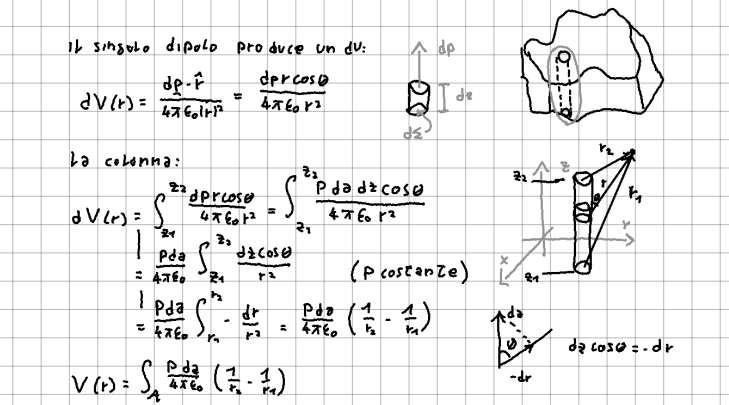 il singolo dipolo produce un dV:
dV(r) = dp · r̂ / 4πε₀|r|² = dp r cosθ / 4πε₀ r²
dp
dz
dΣ
La colonna:
dV(r) = ∫_{z₁}^{z₂} dp r cosθ / 4πε₀ r² = ∫_{z₁}^{z₂} P da dz cosθ / 4πε₀ r²
= Pda / 4πε₀ ∫_{z₁}^{z₂} dz cosθ / r² (P costante)
= Pda / 4πε₀ ∫_{r₁}^{r₂} - dr / r² = Pda / 4πε₀ (1/r₂ - 1/r₁)
V(r) = ∫_A P da / 4πε₀ (1/r₂ - 1/r₁)
z₂
z
r₂
r
θ
r₁
r
x
z₁
dz
θ
-dr
dz cosθ = -dr